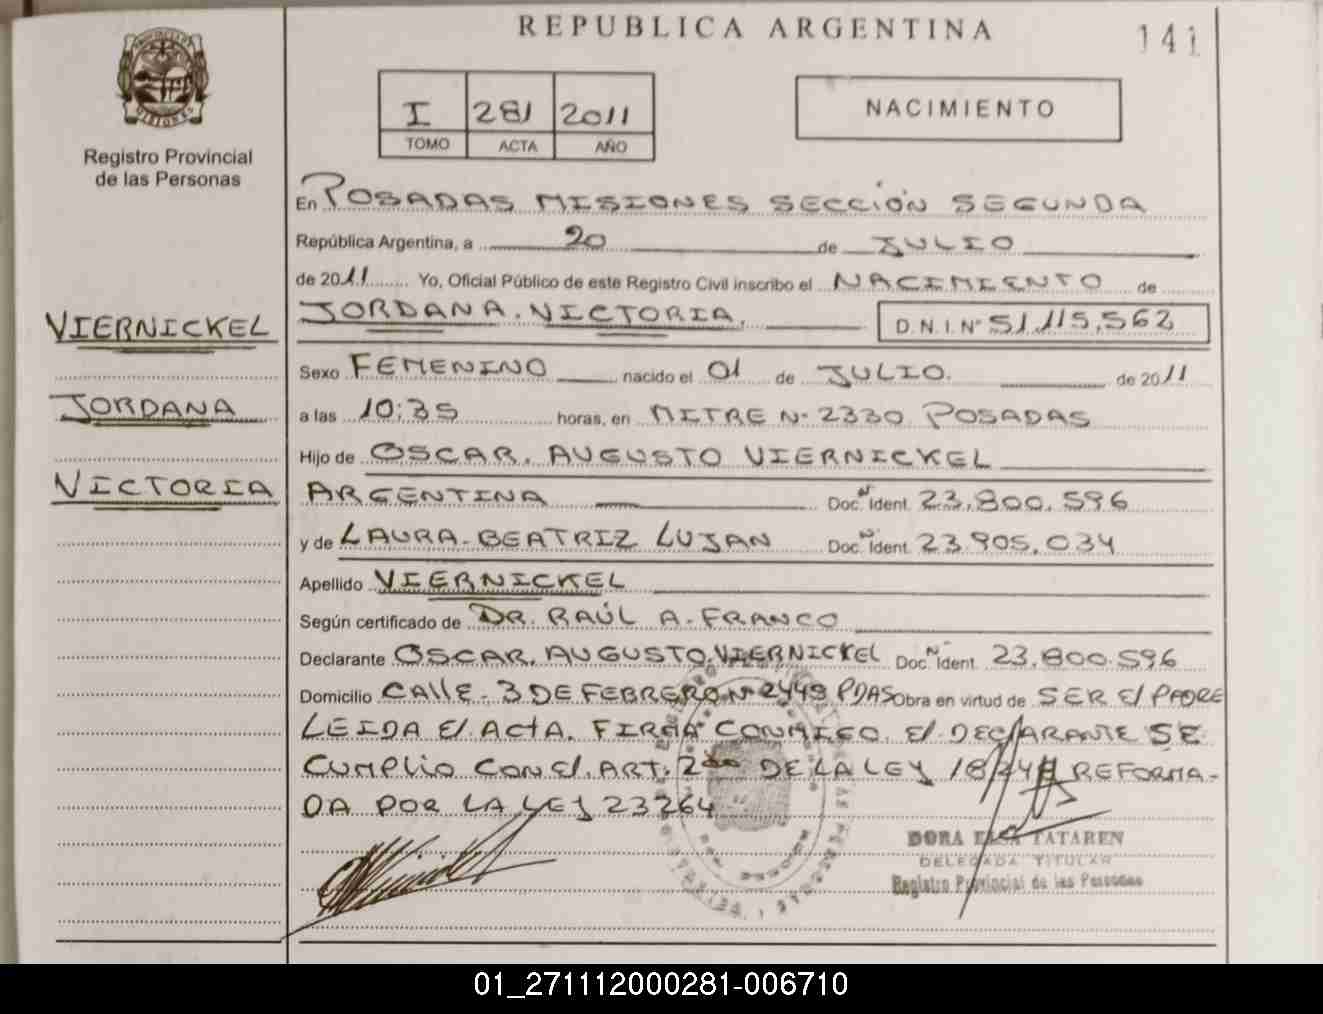 REPUBLICA ARGENTINA
141
PROVINCIA DE
MISIONES
Registro Provincial
de las Personas
I 281 2011
TOMO ACTA AÑO
NACIMIENTO
En POSADAS MISIONES SECCIÓN SEGUNDA
República Argentina, a 20 de JULIO
de 2011 Yo, Oficial Público de este Registro Civil inscribo el NACIMIENTO de
JORDANA. VICTORIA. D.N.I. N° 51.115.562
VIERNICKEL
JORDANA
VICTORIA
Sexo FEMENINO nacido el 01 de JULIO. de 2011
a las 10:35 horas, en MITRE N° 2330 POSADAS
Hijo de OSCAR. AUGUSTO VIERNICKEL
ARGENTINA Doc. N° Ident. 23.800.596
y de LAURA. BEATRIZ LUJAN Doc. N° Ident. 23.905.034
Apellido VIERNICKEL
Según certificado de DR. RAÚL A. FRANCO
Declarante OSCAR. AUGUSTO. VIERNICKEL Doc. N° Ident. 23.800.596
Domicilio CALLE. 3 DE FEBRERO N° 2449 PDAS Obra en virtud de SER El PADRE
LEIDA El ACTA. FIRMA CONMIGO. El DEClARANTE SE
CUMPLIO CON El. ART. 2do DE LA LEY 18248 REFORMA-
DA POR LA LEY 23264
DORA ELSA TATAREN
DELEGADA TITULAR
Registro Provincial de las Personas
01_271112000281-006710